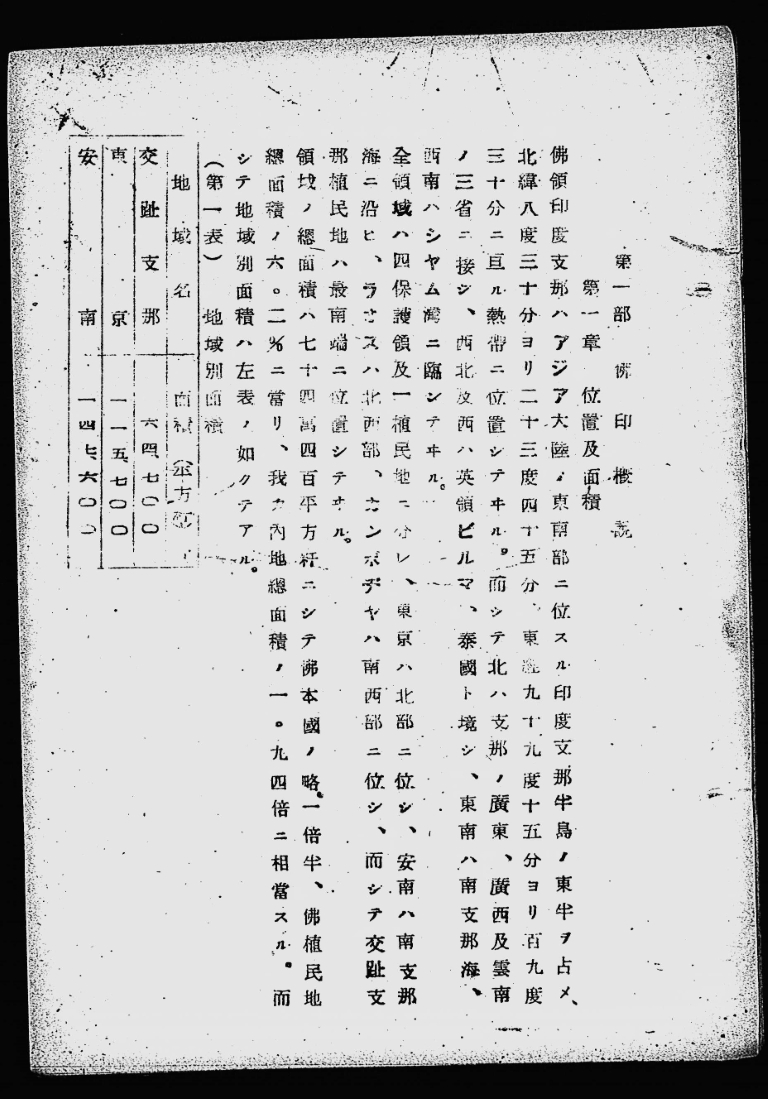 第一部 佛印概説
第一章 位置及面積
佛領印度支那ハアジア大陸ノ東南部ニ位スル印度支那半島ノ東半ヲ占メ、
北緯八度三十分ヨリ二十三度四十五分、東經九十九度十五分ヨリ百九度
三十分ニ亘ル熱帶ニ位置シテヰル。而シテ北ハ支那ノ廣東、廣西及雲南
ノ三省ニ接シ、西北及西ハ英領ビルマ、泰國ト境シ、東南ハ南支那海、
西南ハシヤム灣ニ臨シテヰル。
全領域ハ四保護領及一植民地ニ分レ、東京ハ北部ニ位シ、安南ハ南支那
海ニ沿ヒ、ラオスハ北西部、カンボヂヤハ南西部ニ位シ、而シテ交趾支
那植民地ハ最南端ニ位置シテヰル。
領域ノ總面積ハ七十四萬四百平方粁ニシテ佛本國ノ略一倍半、佛植民地
總面積ノ六。二%ニ當リ、我カ內地總面積ノ一。九四倍ニ相當スル。而
シテ地域別面積ハ左表ノ如クテアル。
(第一表) 地域別面積
地域名 面積(平方粁)
交趾支那 六四、七〇〇
東京 一一五、七〇〇
安南 一四七、六〇〇